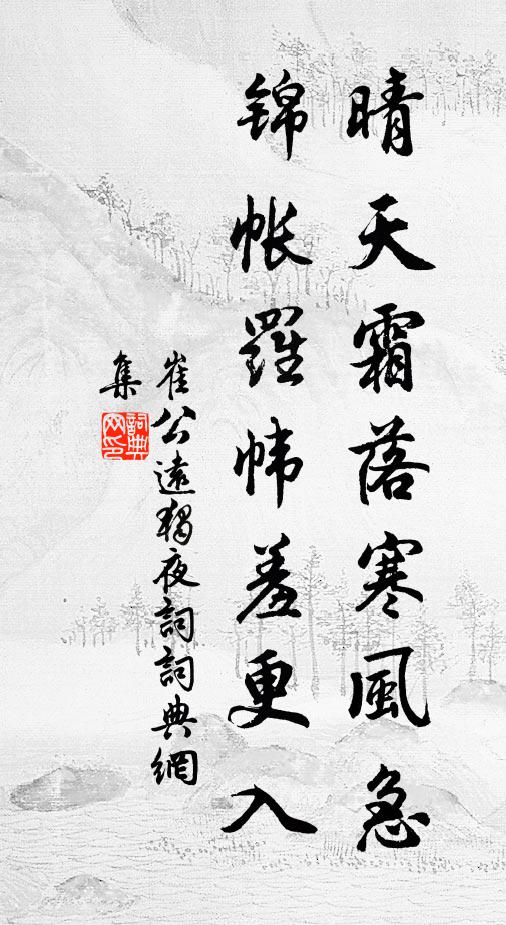 晴天霜落寒風急
錦帐羅帏羞更入
崔公遠獨夜詞詞典網
集
詞典
网印